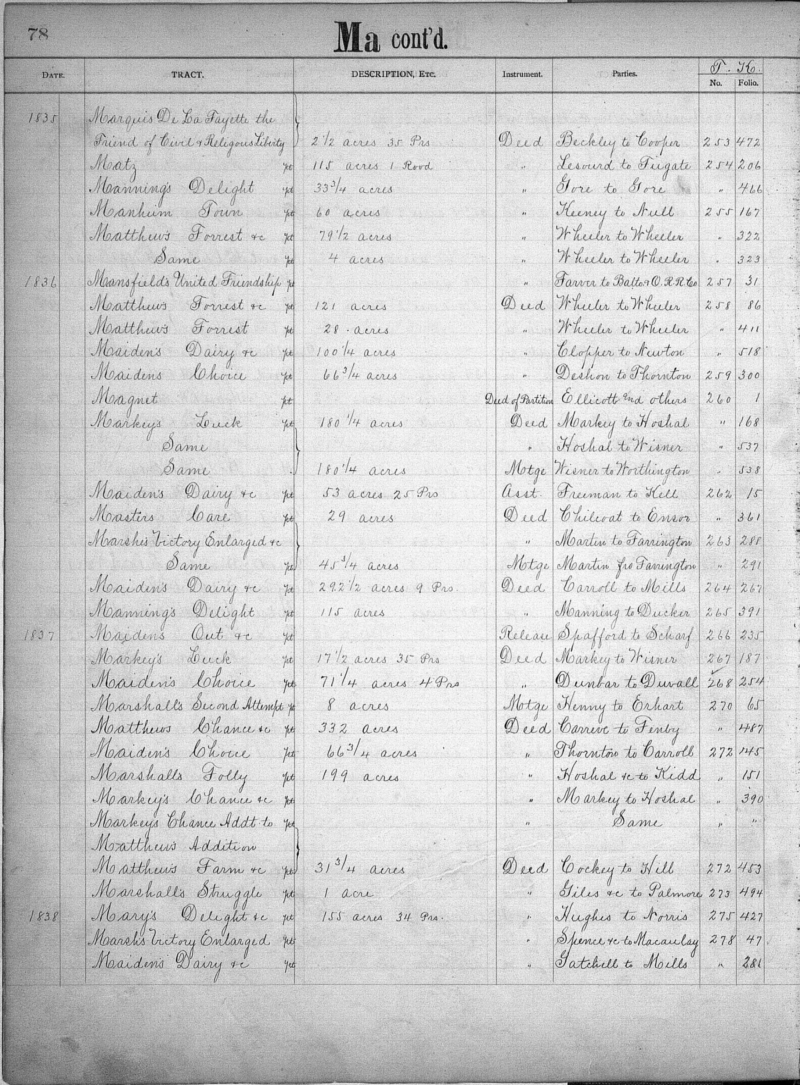 78 Ma cont'd.
T. K.
DATE. TRACT. DESCRIPTION, ETC. Instrument. Parties. No. Folio.
1835 Marquis De La Fayette the
Friend of Civil & Religious Liberty 2 1/2 acres 35 Prs Deed Beckley to Cooper 253 472
Matz pt 115 acres 1 Rood " Lesourd to Fugate 254 206
Manning's Delight pt 33 3/4 acres " Gore to Gore " 466
Manheim Town pt 60 acres " Keeney to Null 255 167
Matthews Forrest &c pt 79 1/2 acres " Wheeler to Wheeler " 322
Same pt 4 acres " Wheeler to Wheeler " 323
1836 Mansfield's United Friendship pt " Farver to Balto & O. R R Co 257 31
Matthews Forrest &c pt 121 acres Deed Wheeler to Wheeler 258 86
Matthews Forrest pt 28 acres " Wheeler to Wheeler " 411
Maiden's Dairy &c pt 100 1/4 acres " Clopper to Newton " 518
Maidens Choice pt 66 3/4 acres " Deshon to Thornton 259 300
Magnet pt Deed of Partition Ellicott and others 260 1
Markey's Luck pt 180 1/4 acres Deed Markey to Hoshal " 168
Same " Hoshal to Wisner " 537
Same 180 1/4 acres Motge Wisner to Worthington " 538
Maiden's Dairy &c pt 53 acres 25 Prs Asst Freeman to Kell 262 15
Masters Care pt 29 acres Deed Chilcoat to Ensor " 361
Marshis Victory Enlarged &c " Martin to Farrington 263 288
Same pt 45 3/4 acres Motge Martin fro Farrington " 291
Maiden's Dairy &c pt 292 1/2 acres 9 Prs Deed Carroll to Mills 264 267
Manning's Delight pt 115 acres " Manning to Ducker 265 391
1837 Maidens Out &c pt Release Shafford to Scharf 266 235
Markey's Luck pt 17 1/2 acres 35 Prs Deed Markey to Wisner 267 187
Maiden's Choice pt 71 1/4 acres 4 Prs " Dunbar to Duvall 268 254
Marshall's Second Attempt pt 8 acres Motge Henny to Erhart 270 65
Matthews Chance &c pt 332 acres Deed to Fenby " 487
Maiden's Choice pt 66 3/4 acres " Thornton to Carroll 272 145
Marshalls Folly pt 199 acres " Hoshal &c to Kidd " 151
Markey's Chance &c pt " Markey to Hoshal " 390
Markey's Chance Addt to pt " Same " "
Matthews Addition
Matthews Farm &c pt 31 3/4 acres Deed Cockey to Hill 272 453
Marshall's Struggle pt 1 acre " Giles &c to Palmore 273 494
1838 Mary's Delight &c pt 155 acres 34 Prs. " Hughes to Norris 275 427
Marsh's Victory Enlarged pt " Spence &c to Macaulay 278 47
Maiden's Dairy &c pt " Gatchell to Mills " 281